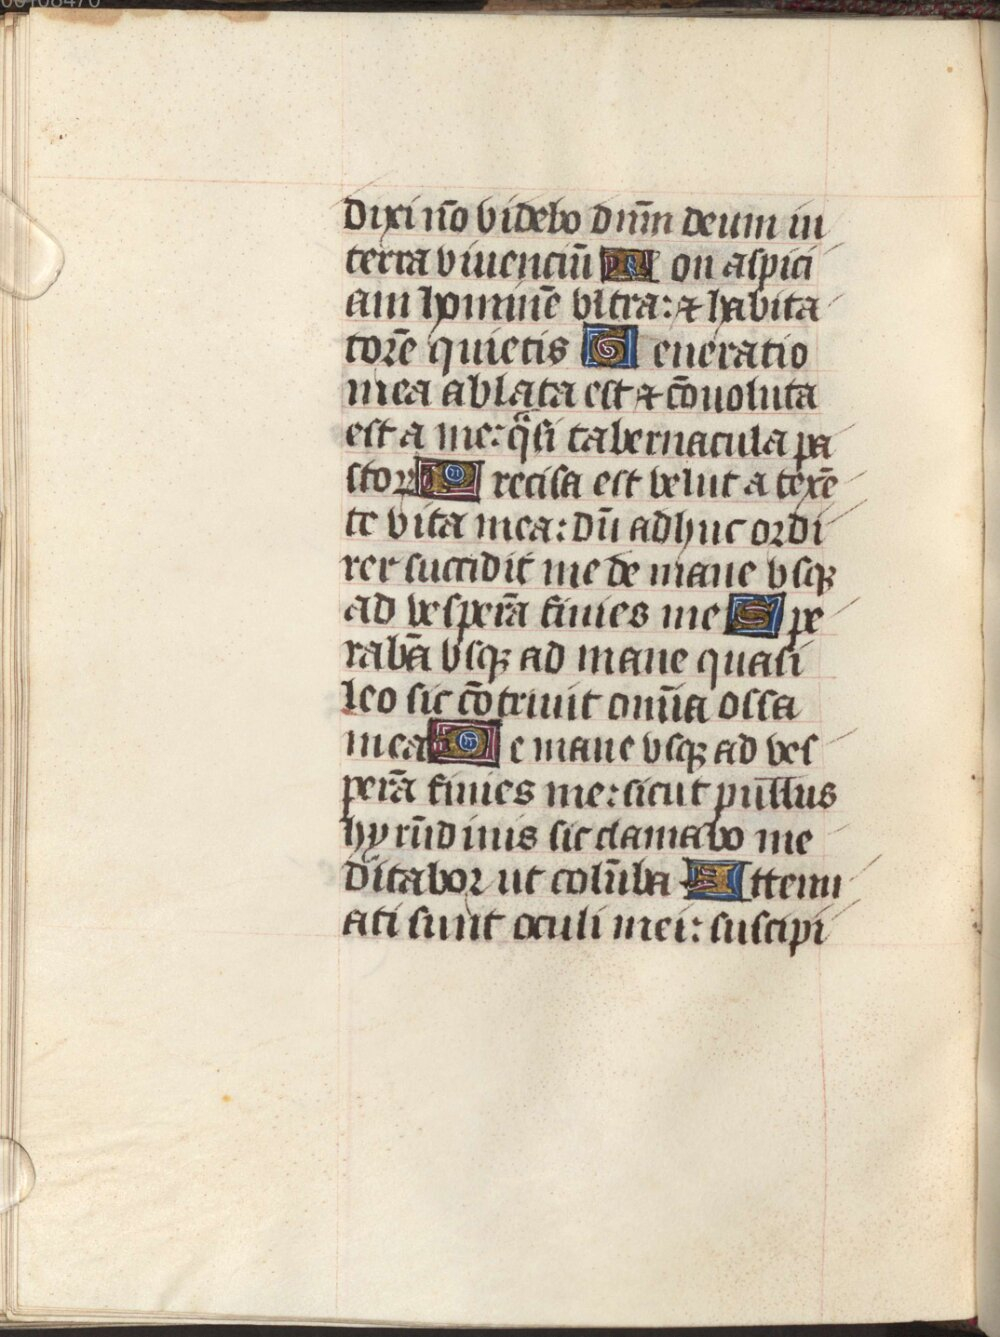 dixi nō videbo dn̄m deum in
terra viuenciū Non aspici
am hominē vltra: ⁊ habita
torē quietis Generatio
mea ablata est ⁊ cōuoluta
est a me: qͣsi tabernacula pa
storꝝ Precisa est velut a texē
te vita mea: dū adhuc ordi
rer succidit me de mane vsqꝫ
ad vesperā finies me Spe
rabā vsqꝫ ad mane quasi
leo sic cōtriuit omīa ossa
mea De mane vsqꝫ ad ves
perā finies me: sicut pullus
hyrūdinis sic clamabo me
ditabor ut colūba Attenu
ati sunt oculi mei: suscipi